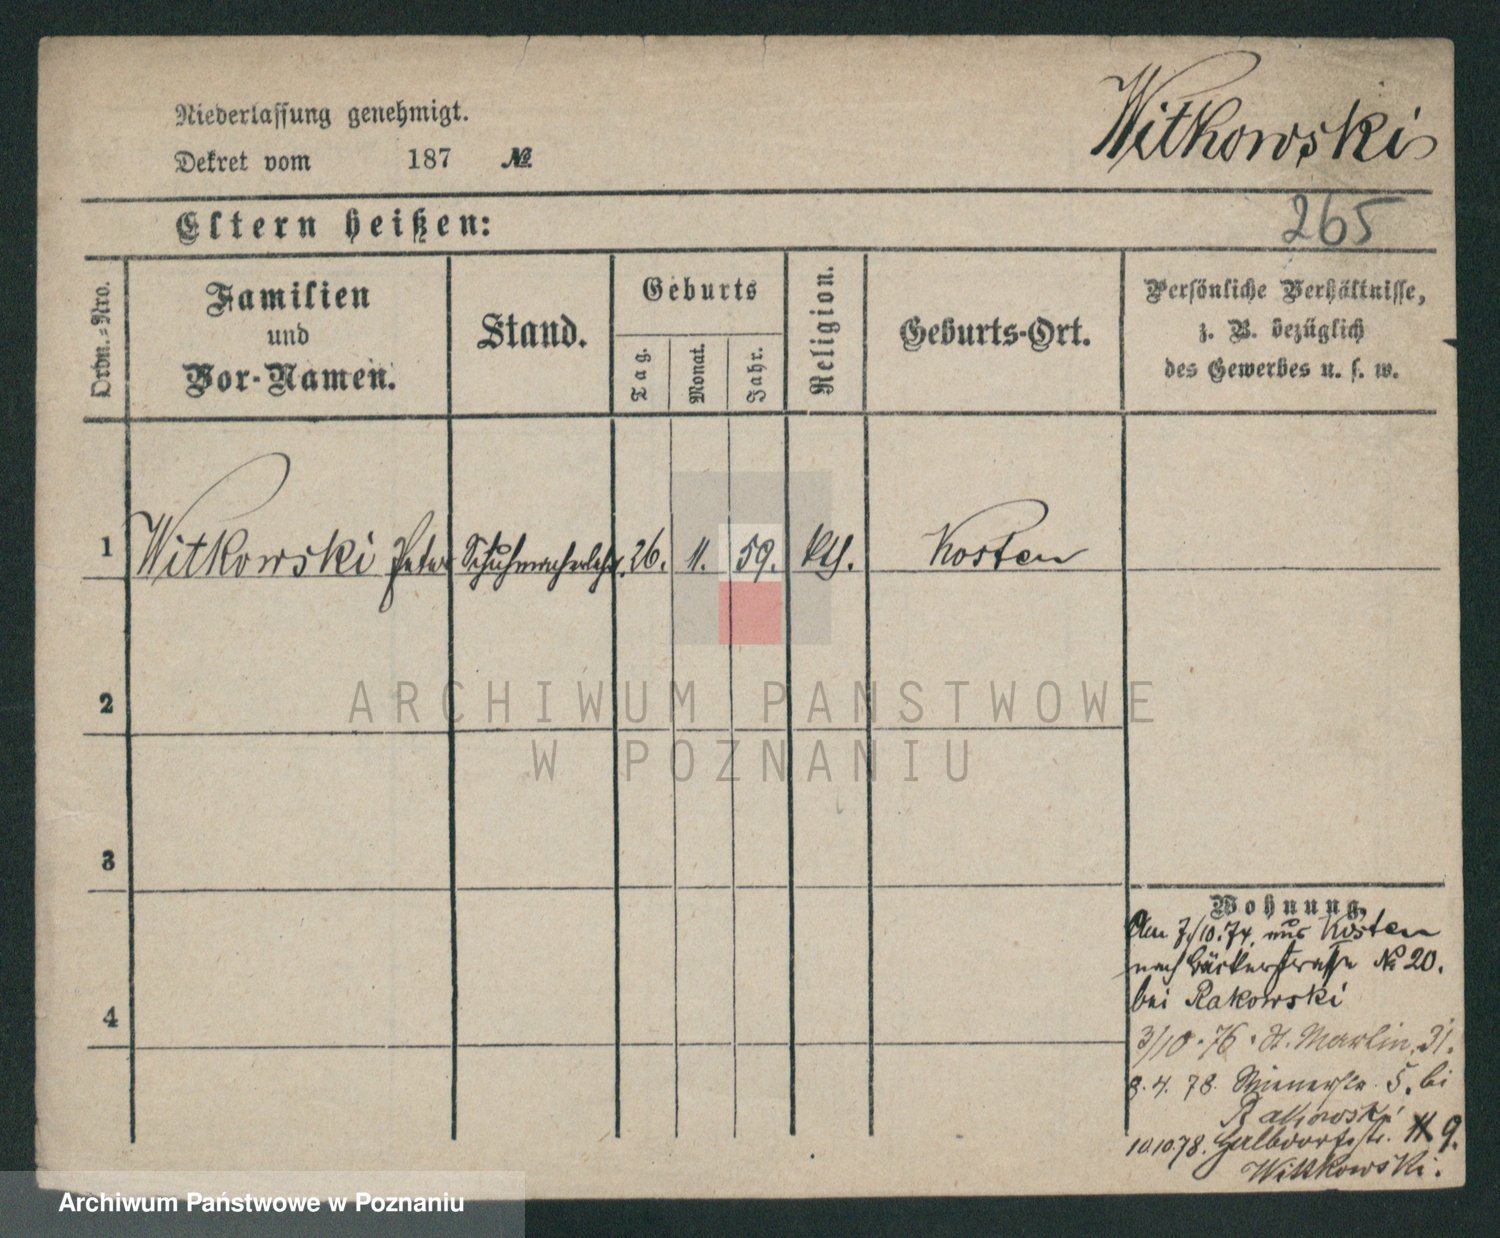 Niederlassung genehmigt.
Witkowski
Dekret vom 187 №
Eltern heißen:
265
Ordn.-Nro.
Familien
und
Vor-Namen.
Stand.
Geburts
Tag.
Monat.
Jahr.
Religion.
Geburts-Ort.
Persönliche Verhältnisse,
z. B. bezüglich
des Gewerbes u. s. w.
1 Witkowski Peter Schuhmacherlehrl. 26. 11. 59. kth. Kosten
2
ARCHIWUM PAŃSTWOWE
W POZNANIU
3
Wohnung.
Am 7/10.74. aus Kosten
nach Bäckerstrasse № 20.
bei Rakowski
4
3/10.76. St. Martin 31.
8.4.78. Wienerstr. 5. bei
Rakowski
10.10.78. Halbdorfstr. 9.
Witkowski.
Archiwum Państwowe w Poznaniu